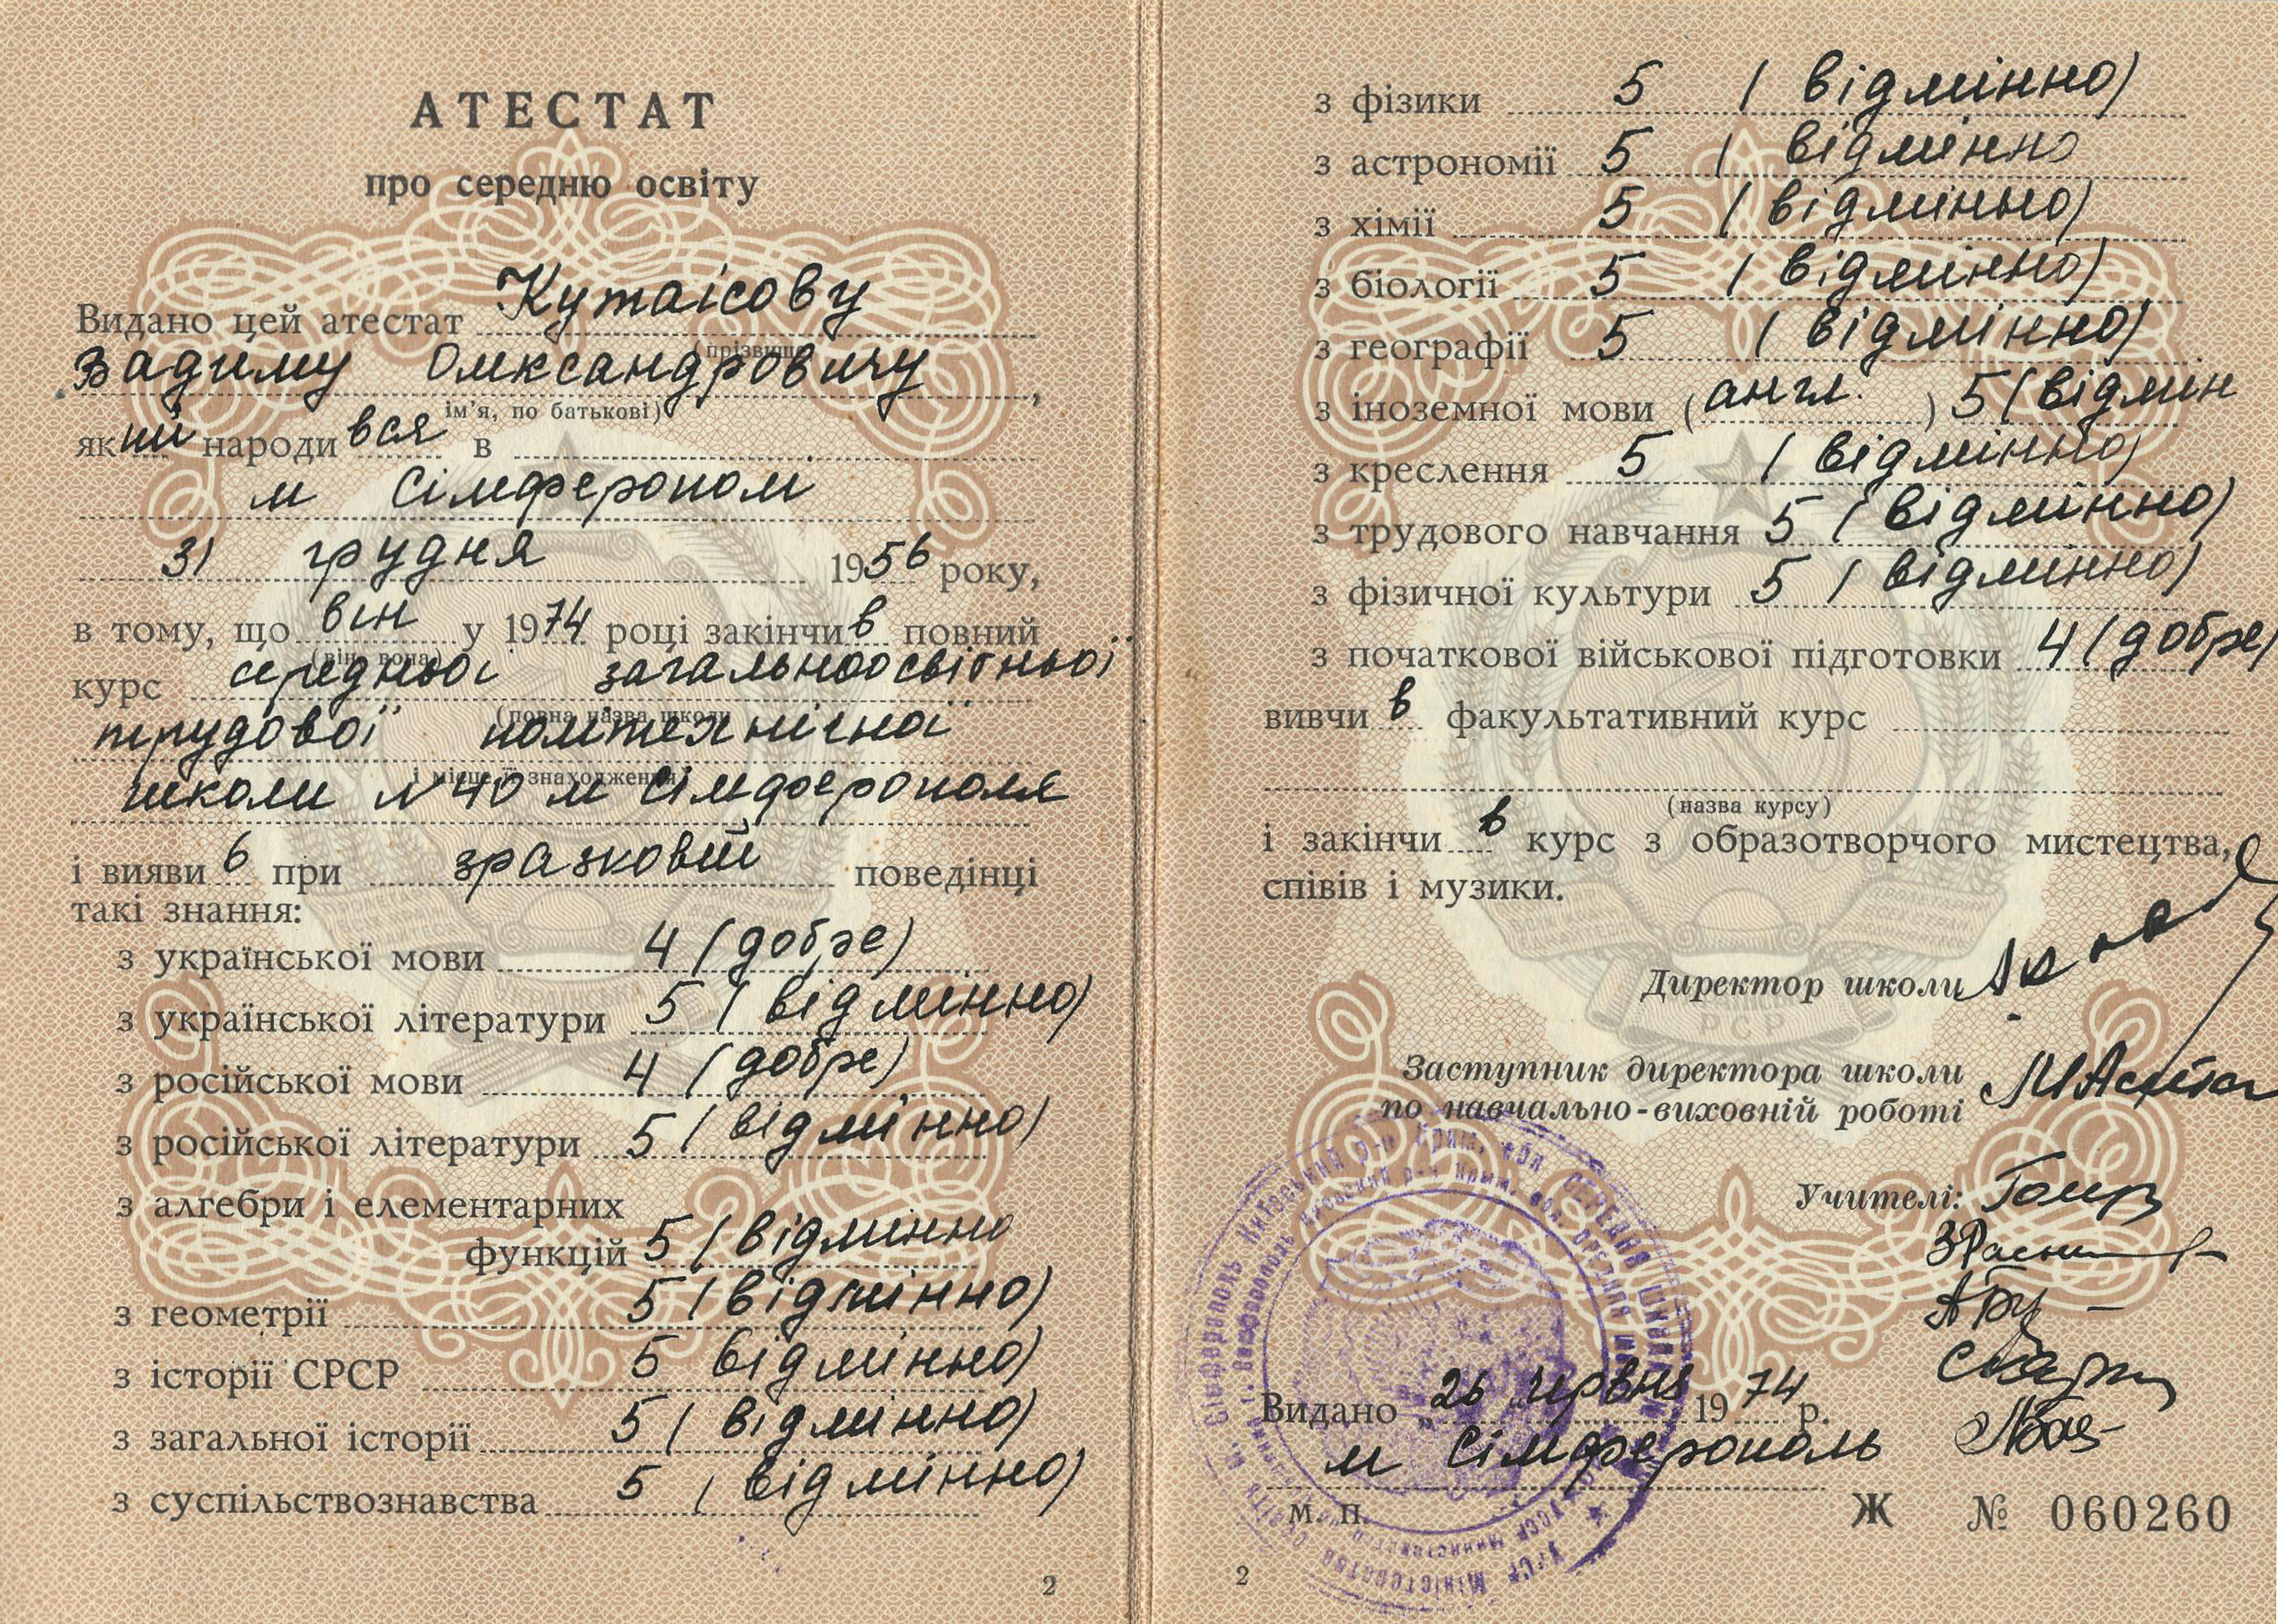 АТЕСТАТ
про середню освіту
Видано цей атестат Кутаісову
(прізвище,
Вадиму Олександровичу,
ім'я, по батькові)
який народився в
м Сімферополі
31 грудня 1956 року,
в тому, що він у 1974 році закінчив повний
(він, вона)
курс середньої загальноосвітньої
(повна назва школи
трудової політехнічної
і місце її знаходження)
школи №40 м Сімферополя
і виявив при зразковій поведінці
такі знання:
з української мови 4 (добре)
з української літератури 5 (відмінно)
з російської мови 4 (добре)
з російської літератури 5 (відмінно)
з алгебри і елементарних
функцій 5 (відмінно
з геометрії 5 (відмінно)
з історії СРСР 5 відмінно)
з загальної історії 5 (відмінно)
з суспільствознавства 5 (відмінно)
2
з фізики 5 (відмінно)
з астрономії 5 (відмінно
з хімії 5 (відмінно)
з біології 5 (відмінно)
з географії 5 (відмінно)
з іноземної мови (англ.) 5 (відмин
з креслення 5 (відмінно)
з трудового навчання 5 (відмінно)
з фізичної культури 5 (відмінно)
з початкової військової підготовки 4 (добре)
вивчив факультативний курс
(назва курсу)
і закінчив курс з образотворчого мистецтва,
співів і музики.
Директор школи
Заступник директора школи
по навчально-виховній роботі
Учителі:
Видано „26 „ червня 1974 р.
м Сімферополь
м. п.
Ж № 060260
2